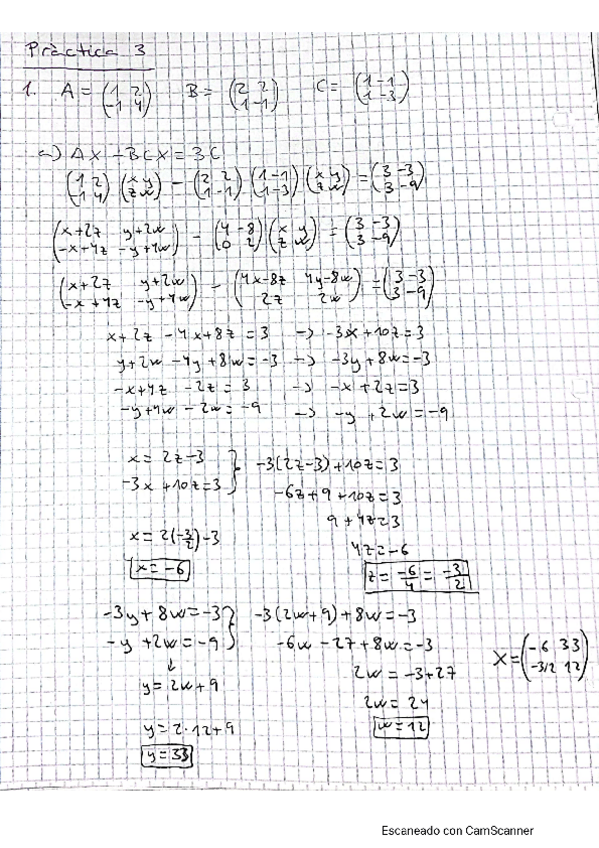 Pràctica 3
1. A = (1 2 / -1 4) B = (2 2 / 1 -1) C = (1 -1 / 1 -3)
a) AX - BCX = 3C
(1 2 / -1 4) (x y / z w) - (2 2 / 1 -1) (1 -1 / 1 -3) (x y / z w) = (3 -3 / 3 -9)
(x+2z y+2w / -x+4z -y+4w) - (4 -8 / 0 2) (x y / z w) = (3 -3 / 3 -9)
(x+2z y+2w / -x+4z -y+4w) - (4x-8z 4y-8w / 2z 2w) = (3 -3 / 3 -9)
x+2z -4x+8z = 3 → -3x+10z=3
y+2w -4y+8w = -3 → -3y+8w=-3
-x+4z -2z = 3 → -x+2z=3
-y+4w -2w = -9 → -y+2w=-9
x = 2z-3
-3x+10z=3
-3(2z-3)+10z=3
-6z+9+10z=3
9+4z=3
4z=-6
z = -6/4 = -3/2
x = 2(-3/2)-3
x = -6
-3y+8w=-3
-y+2w=-9
↓
y = 2w+9
-3(2w+9)+8w=-3
-6w-27+8w=-3
2w = -3+27
2w = 24
w = 12
y = 2·12+9
y = 33
X = (-6 33 / -3/2 12)
Escaneado con CamScanner